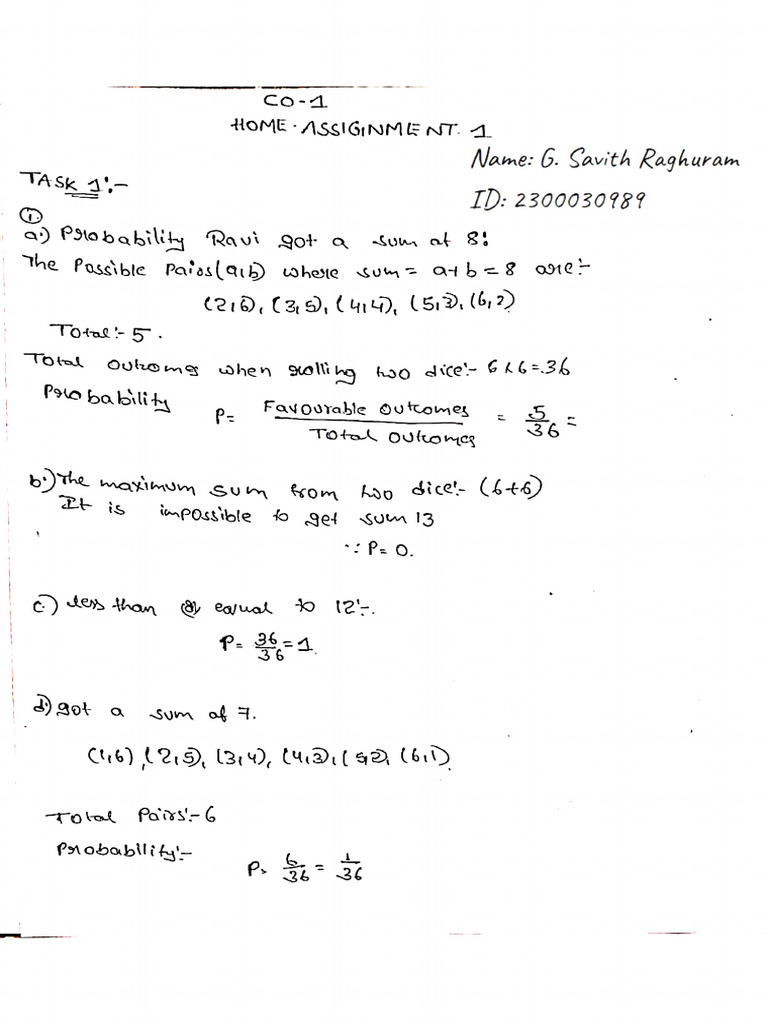 CO-1
HOME-ASSIGINMENT. 1
Name: G. Savith Raghuram
ID: 2300030989
TASK 1:-
①
a.) Probability Ravi got a sum of 8:
The Possible Pairs(a,b) where sum = a+b = 8 are:-
(2,6), (3,5), (4,4), (5,3), (6,2)
Total:- 5.
Total outcomes when rolling two dice:- 6×6=36
Probability
P= Favourable outcomes / Total outcomes = 5/36 =
b.) The maximum sum from two dice:- (6+6)
It is impossible to get sum 13
∵ P= 0.
c.) less than or equal to 12:-.
P= 36/36 = 1.
d.) got a sum of 7.
(1,6), (2,5), (3,4), (4,3), (5,2), (6,1).
Total Pairs:- 6
Probability:-
P= 6/36 = 1/36